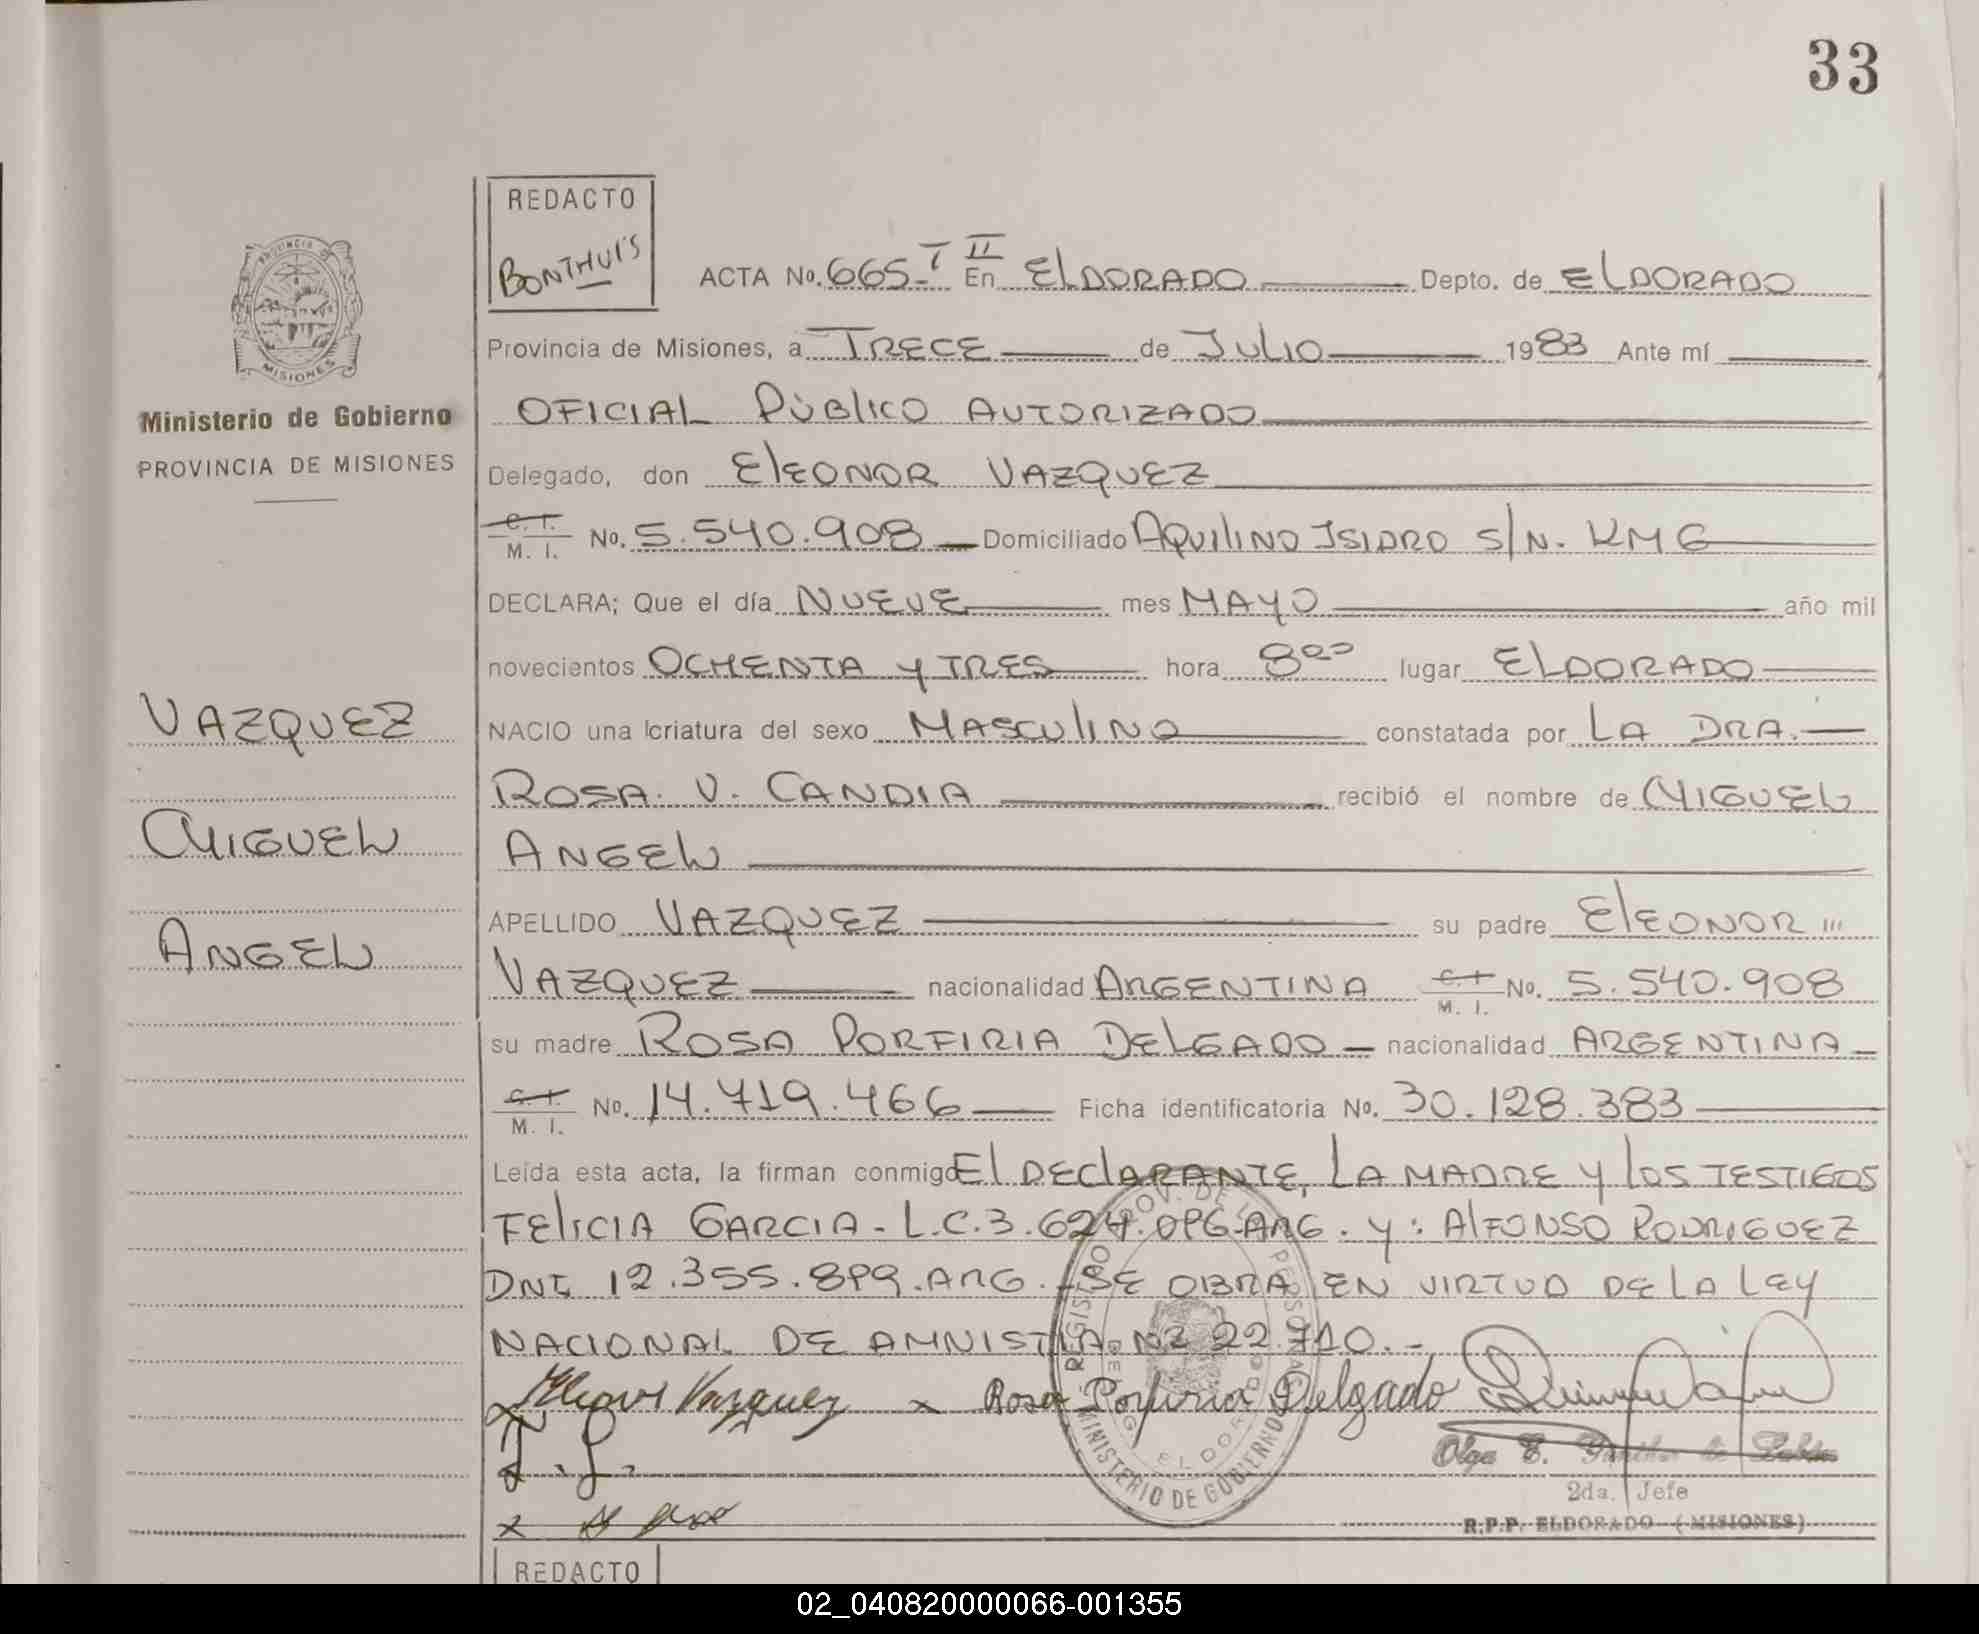 33
REDACTO
BONTHUIS
PROVINCIA DE
MISIONES
Ministerio de Gobierno
PROVINCIA DE MISIONES
VAZQUEZ
MIGUEL
ANGEL
ACTA No. 665-T II En ELDORADO Depto. de ELDORADO
Provincia de Misiones, a TRECE de JULIO 1983 Ante mí
OFICIAL PÚBLICO AUTORIZADO
Delegado, don ELEONOR VAZQUEZ
C. I. M. I. No. 5.540.908 Domiciliado AQUILINO ISIDRO S/N. KM 6
DECLARA; Que el día NUEVE mes MAYO año mil
novecientos OCHENTA Y TRES hora 8 00 lugar ELDORADO
NACIO una criatura del sexo MASCULINO constatada por LA DRA.
ROSA. V. CANDIA recibió el nombre de MIGUEL
ANGEL
APELLIDO VAZQUEZ su padre ELEONOR
VAZQUEZ nacionalidad ARGENTINA C. I. M. I. No. 5.540.908
su madre ROSA PORFIRIA DELGADO nacionalidad ARGENTINA
C. I. M. I. No. 14.719.466 Ficha identificatoria No. 30.128.383
Leída esta acta, la firman conmigo EL DECLARANTE, LA MADRE Y LOS TESTIGOS
FELICIA GARCIA - L.C. 3.624.096-ARG. Y: ALFONSO RODRIGUEZ
DNI. 12.355.899. ARG. - SE OBRA EN VIRTUD DE LA LEY
NACIONAL DE AMNISTIA Nº 22.710.-
Eleonor Vazquez x Rosa Porfiria Delgado
Olga E.
2da. Jefe
x
R.P.P. ELDORADO (MISIONES)
MINISTERIO DE GOBIERNO
ELDORADO
REDACTO
02_040820000066-001355